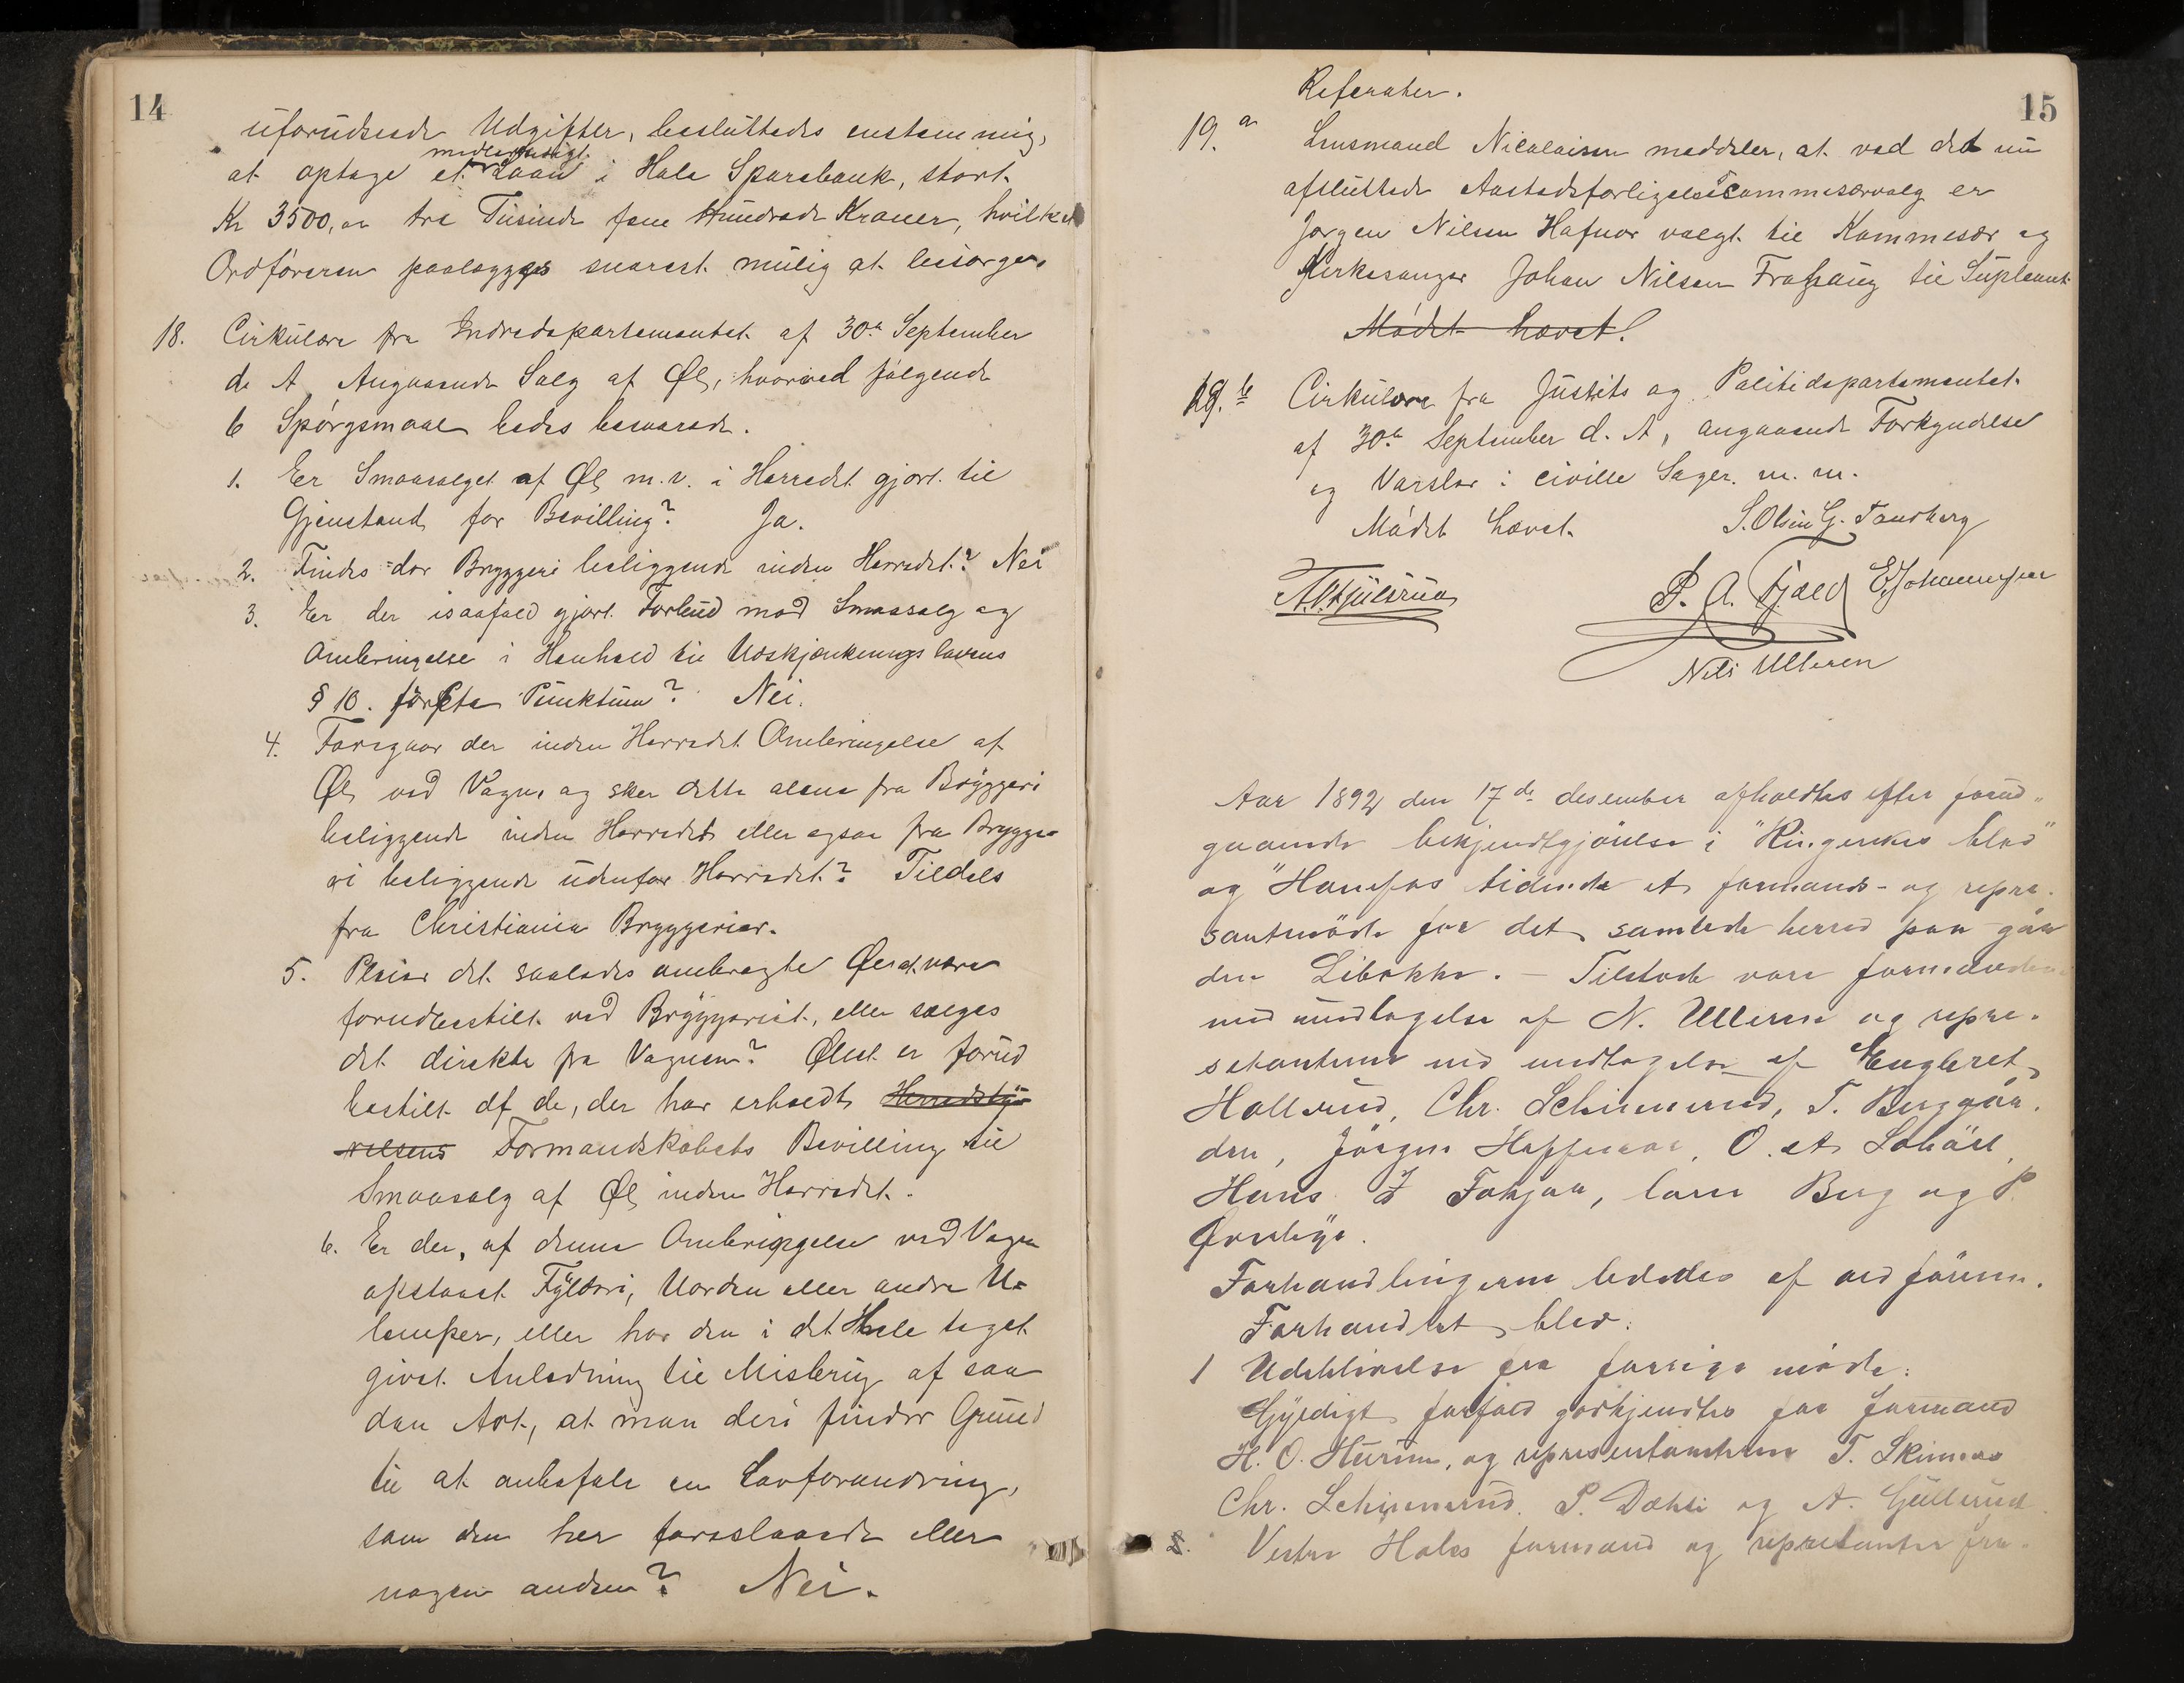 14
uforudseede Udgifter, besluttedes enstemmig,
at optage et midlertidigt Laan i Hole Sparebank, stort
Kr 3500, er tre Tusinde fem Hundrede Kroner, hvilket
Ordföreren paalægges snarest mulig at besörge.
18. Cirkulære fra Indredepartementet af 30te September
d. A. Angaaende Salg af Øl, hvorved fölgende
6 Spörgsmaal bedes besvarede.
1. Er Smaasalget af Øl m.v. i Herredet gjort til
Gjenstand for Bevilling? Ja.
2. Findes der Bryggeri beliggende inden Herredet? Nei
3. Er der isaafald gjort Forbud mod Smaasalg og
Ombringelse i Henhold til Udskjænkningslovens
§ 10. förste Punktum? Nei.
4. Foregaar der inden Herredet Ombringelse af
Øl ved Vogn, og sker dette alene fra Bryggeri
beliggende inden Herredet eller ogsaa fra Brygge-
ri beliggende udenfor Herredet? Tildels
fra Christiania Bryggerier.
5. Pleier det saaledes ombragte Øl at være
forudbestilt ved Bryggeriet, eller sælges
det direkte fra Vognen? Ølet er forud
bestilt af de, der har erholdt Herredsty-
relsens Formandskabets Bevilling til
Smaasalg af Øl inden Herredet.
6. Er der, af denne Ombringelse ved Vogn
opstaaet Fylderi, Uorden eller andre U-
lemper, eller har den i det Hele taget
givet Anledning til Misbrug af saa
dan Art, at man deri finder Grund
til at anbefale en Lovforandring,
som den her foreslaaede eller
nogen anden? Nei.
15
Referater.
19. a Lensmand Nicolaisen meddeler, at ved det nu
afsluttede Aastedsforligelsescommisærvalg er
Jorgen Nilsen Hafnor valgt til Kommesær og
Kirkesanger Johan Nilsen Frohaug til Supleant
Mödet hævet!
19. b Cirkulære fra Justits og Politidepartementet
af 30te September d. A, angaaende Forkyndelse
og Varsler i civille Sager. m. m.
Mödet hævet. S. Olsen G. Tandberg
P. A. Fjeld E. Johannessen
Nils Ulleren
Aar 1892 den 17de desember afholdtes efter forud„
gaaende bekjendtgjörelse i "Ringerikes blad"
og "Hönefos tidende et formands- og repre-
santmöde for det samlede herred paa gaar
den Libakke. - Tilstede vare formændene
med undtagelse af N. Ulleren og repre-
setanterne med undtagelse af Engebret
Hollerud, Chr. Schinnerud, T. Berggaar-
den, Jörgen Haffnor, O. A
Hans Berg og P.
Forhandlingerne lededes af ordföreren.
Forhandlet blev:
1 Udeblivelse fra forrige möde:
Gyldigt forfald godkjendtes for formand
H. O. Hurum, og representanterne T.
Chr. Schinnerud. P. Dæhli og A. Gullerud
2. Vestre Holes formand og representanter fra-